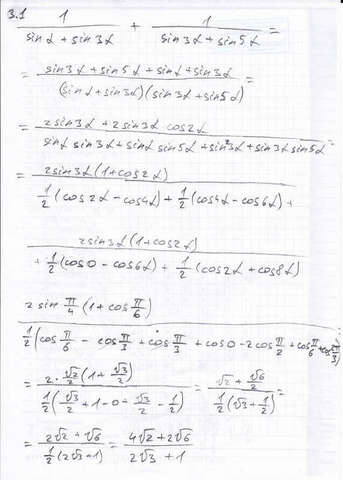 3.1 1/(sinα + sin3α) + 1/(sin3α + sin5α) =
= (sin3α + sin5α + sinα + sin3α)/((sinα + sin3α)(sin3α + sin5α)) =
= (2sin3α + 2sin3α cos2α)/(sinα sin3α + sinα sin5α + sin²3α + sin3α sin5α) =
= 2sin3α(1+cos2α)/(1/2(cos2α - cos4α) + 1/2(cos4α - cos6α) +
2sin3α(1+cos2α)/(+ 1/2(cos0 - cos6α) + 1/2(cos2α + cos8α)
2 sin π/4 (1 + cos π/6)/(1/2(cos π/6 - cos π/3 + cos π/3 + cos0 - 2cos π/2 + cos π/6 + cos π/3)
= 2·√2/2(1 + √3/2)/(1/2(√3/2 + 1 - 0 + √3/2 - 1/2)) = (√2 + √6/2)/(1/2(√3 + 1/2)) =
= (2√2 + √6)/(1/2(2√3 + 1)) = (4√2 + 2√6)/(2√3 + 1)